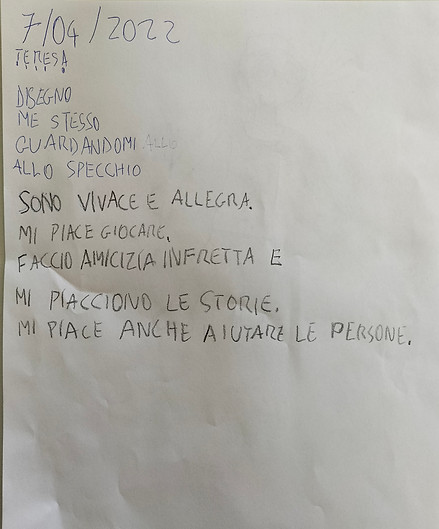 7/04/2022
TERESA
DISEGNO
ME STESSO
GUARDANDOMI ALLO
ALLO SPECCHIO
SONO VIVACE E ALLEGRA.
MI PIACE GIOCARE,
FACCIO AMICIZIA INFRETTA E
MI PIACCIONO LE STORIE.
MI PIACE ANCHE AIUTARE LE PERSONE.